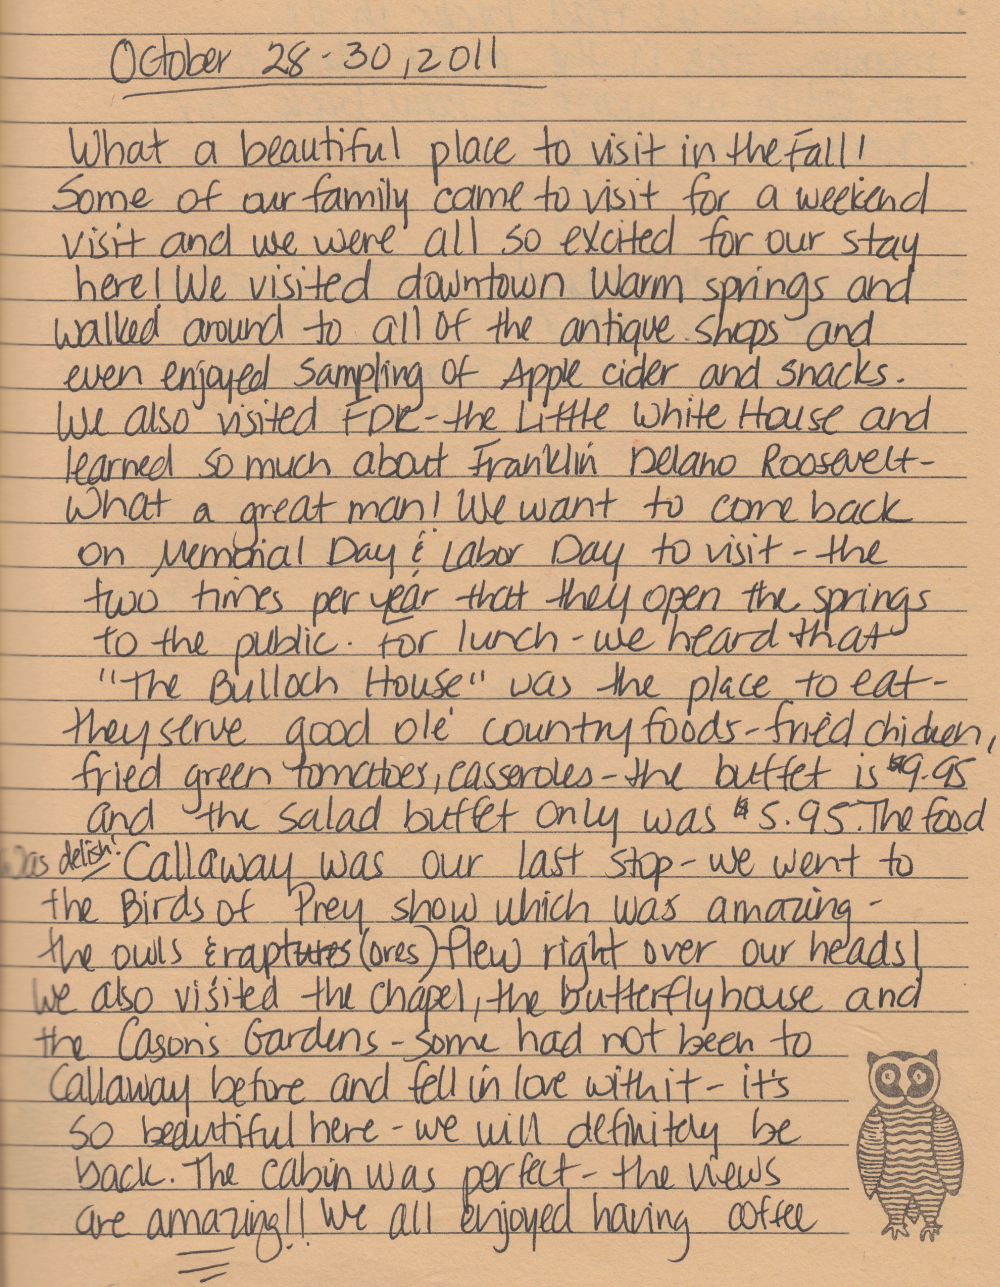 October 28-30, 2011
What a beautiful place to visit in the Fall!
Some of our family came to visit for a weekend
visit and we were all so excited for our stay
here! We visited downtown Warm springs and
walked around to all of the antique shops and
even enjoyed sampling of Apple cider and snacks.
We also visited FDR-the Little White House and
learned so much about Franklin Delano Roosevelt-
What a great man! We want to come back
on Memorial Day & Labor Day to visit - the
two times per year that they open the springs
to the public. For lunch - we heard that
"The Bulloch House" was the place to eat-
they serve good ole' country foods-fried chicken,
fried green tomatoes, casseroles-the buffet is $9.95
and the salad buffet only was $5.95. The food
was delish! Callaway was our last stop-we went to
the Birds of Prey show which was amazing-
the owls & raptures (ores) flew right over our heads!
We also visited the chapel, the butterfly house and
the Cason's Gardens - some had not been to
Callaway before and fell in love with it - it's
so beautiful here - we will definitely be
back. The cabin was perfect - the views
are amazing!! We all enjoyed having coffee